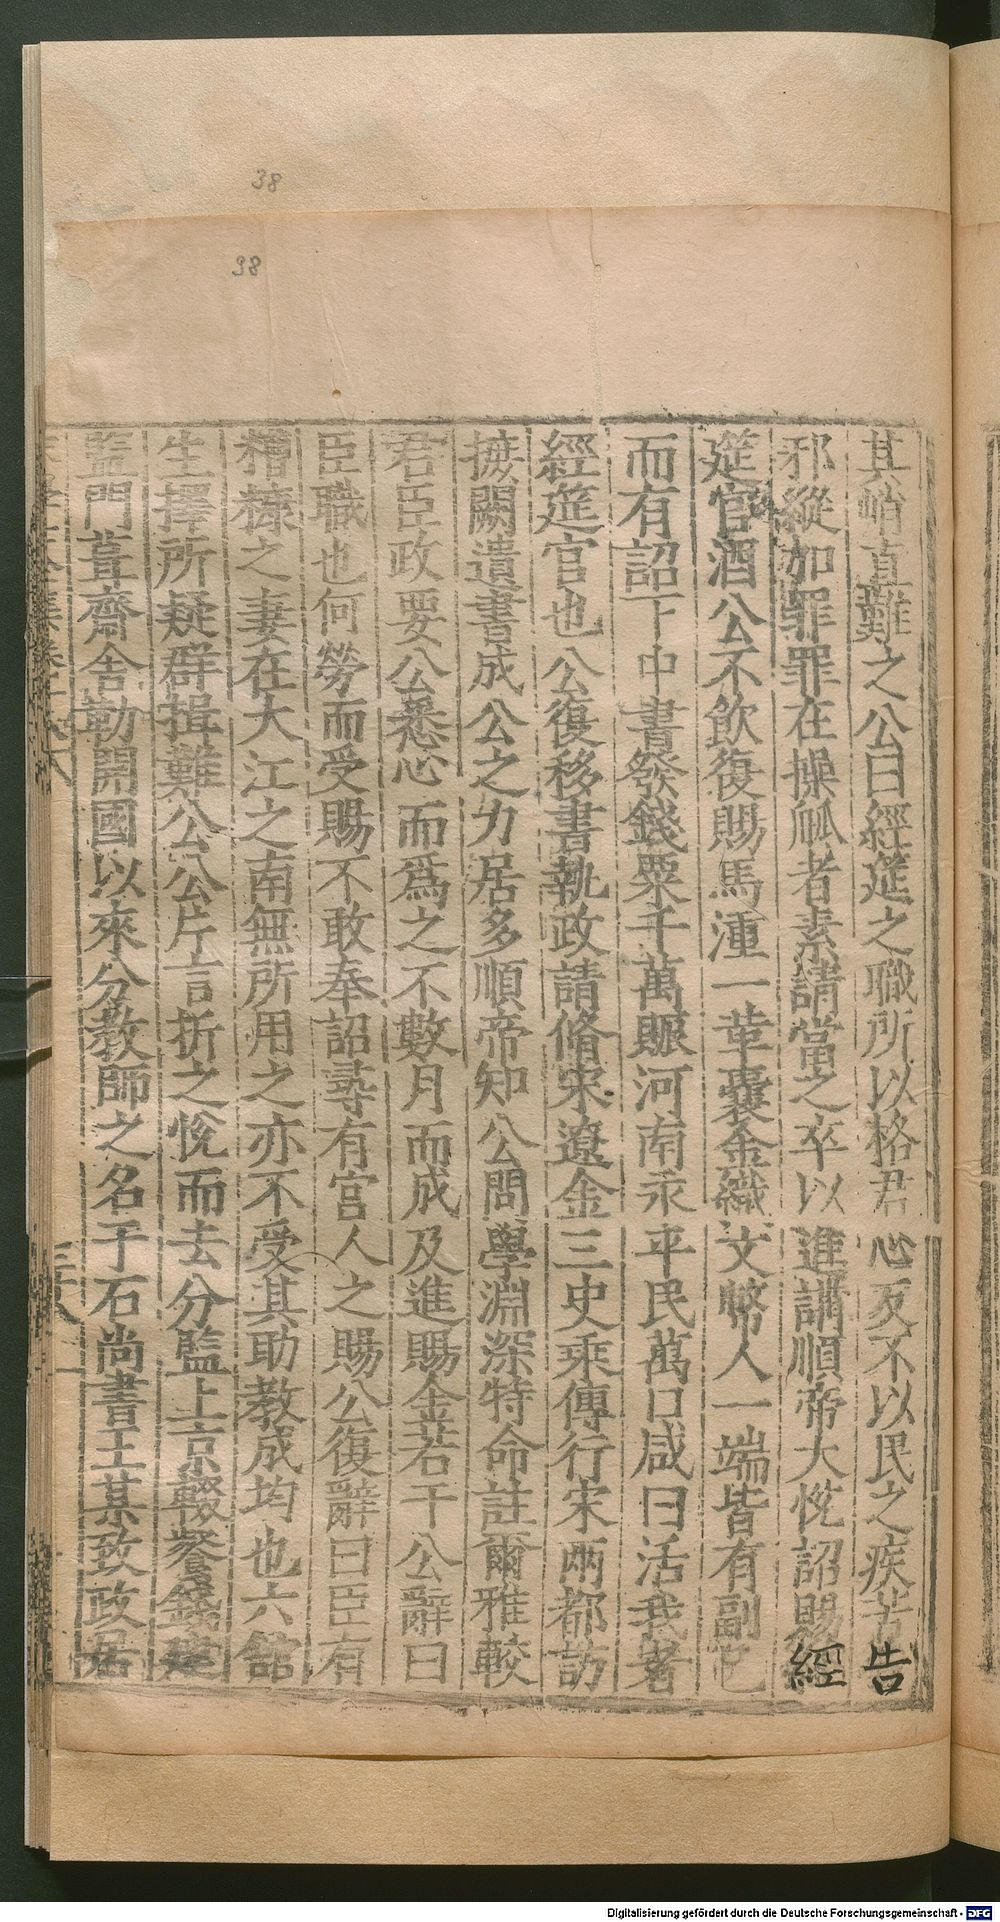 38
38
其峭直難之公曰經筵之職所以格君心反不以民之疾苦告
邪縱加罪罪在操觚者素請當之卒以進講順帝大悅詔賜經
筵官酒公不飲復賜馬湩一革囊金織文幣人一端皆有副已
而有詔下中書發錢粟千萬賑河南永平民萬口咸曰活我者
經筵官也公復移書執政請脩宋遼金三史乘傳行宋兩都訪
摭闕遺書成公之力居多順帝知公問學淵深特命註爾雅較
君臣政要公悉心而爲之不數月而成及進賜金若干公辭曰
臣職也何勞而受賜不敢奉詔尋有宮人之賜公復辭曰臣有
糟糠之妻在大江之南無所用之亦不受其助教成均也六館
生擇所疑群揖難公公片言折之悅而去分監上京輟餐錢建
監門葺齋舍勒開國以來分教師之名于石尚書王某致政居
Digitalisierung gefördert durch die Deutsche Forschungsgemeinschaft - DFG